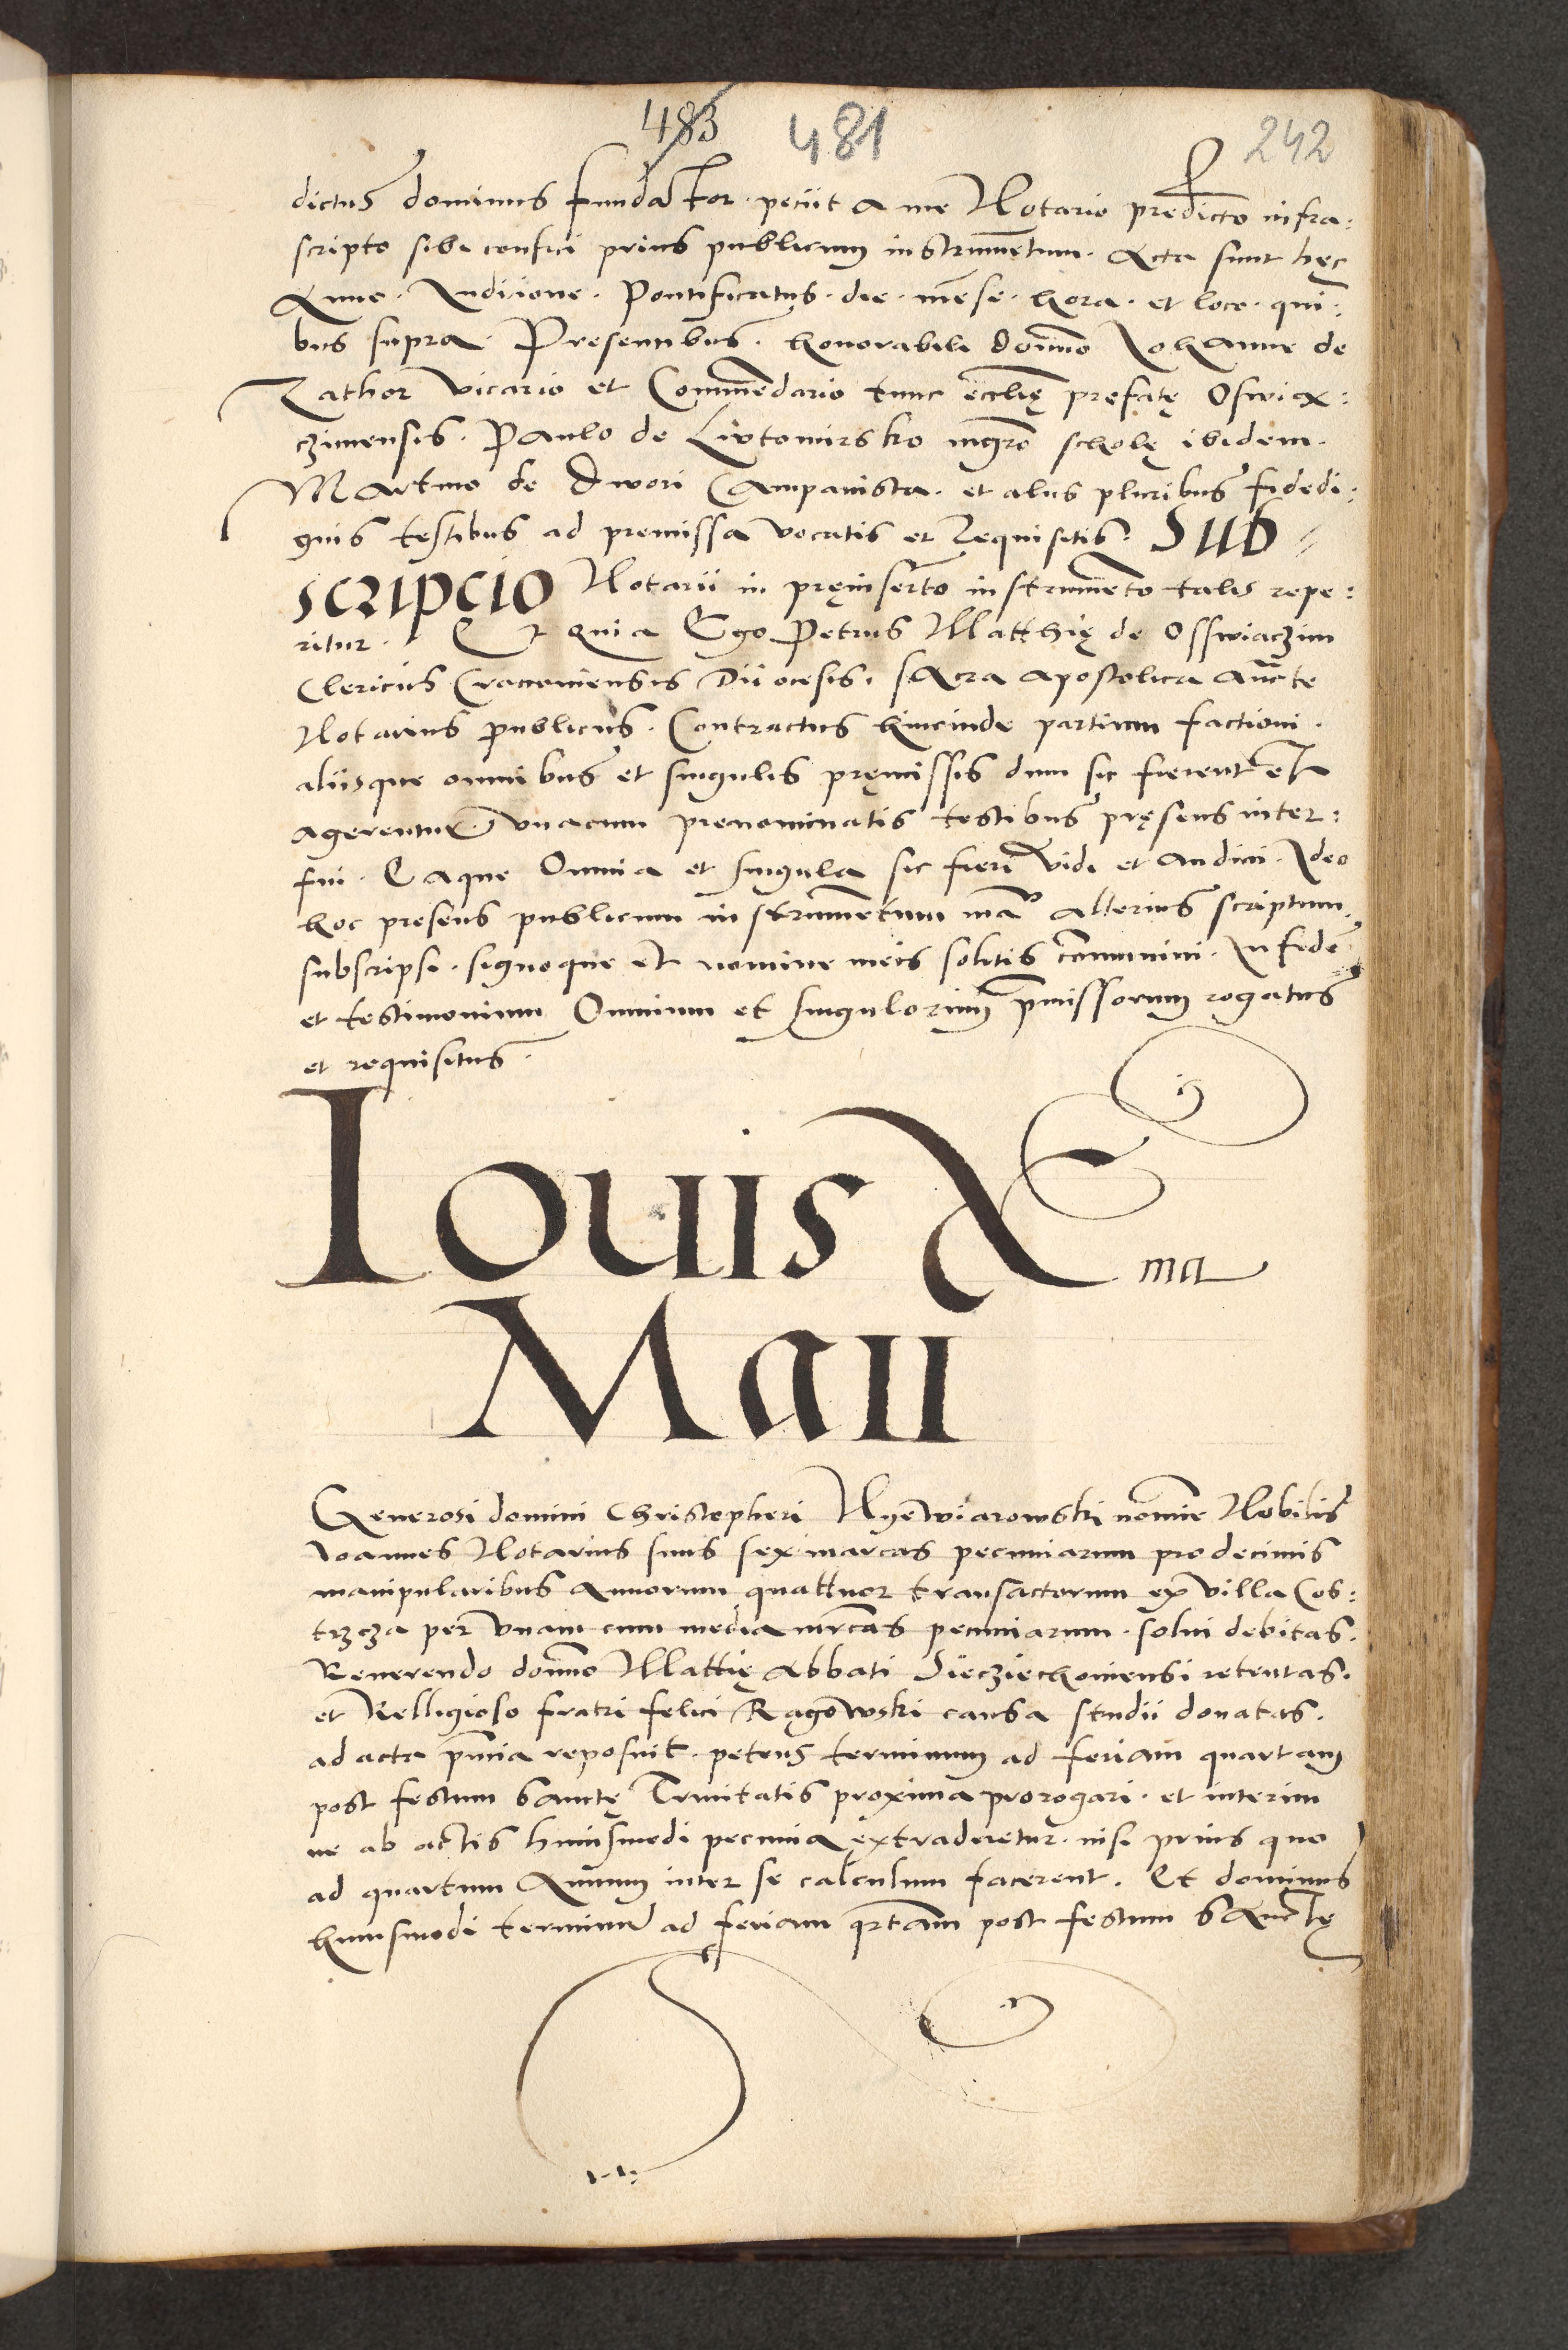 483 481 242
dictus dominus fundator. petiit a me Notario predicto infra:
scripto sibi confici prius publicum instrumentum. Acta sunt hęc
Anno. Indiiione. Pontificatus. die. mẽse. hora. et loco. qui:
bus supra. Presentibus. honorabili dõmino Iohanne de
Zathor vicario et Commẽdario tunc eccłię prefatę Oswią:
czimensis. Paulo de Liutomirsko mgrõ scholę ibidem.
Martino de Dwori Campanista. et aliis pluribus fidedi:
gnis testibus ad premissa vocatis et Requisitis. SUB=
SCRIPCIO Notarii in pręinserto instrumẽto talis repe:
ritur. Et Quia Ego Petrus Matthię de Osswiaczim
Clericus Cracoviensis Diiocesis. sacra apostolica auc̃te
Notarius publicus. Contractus hincinde partium factioni.
aliisque omnibus et singulis pręmissis dum sic fierent et
agerentur. vnacum prenominatis testibus pręsens inter:
fui. Eaque Omnia et singula sic fieri vidi et audiui. Ideo
hoc presens publicum instrumẽtum mãu alterius scriptum
subscripsi. signoque et nomine meis solitis cõmuniui. In fidẽ
et testimonium Omnium et singulorum p̃missorum rogatus
et requisitus.
Iouis X ma
Maii
Generosi domini Christopheri Nyewiarowski nomĩe Nobilis
Ioannes Notarius suus sex marcas pecuniarum pro decimis
manipularibus annorum quattuor transactorum ex villa Cos:
trzcza per vnam cum media mrcas pecuniarum. solui debitas.
Reuerendo domino Mattię Abbati Diecziechouiensi retentas.
et Relligioso fratri felici Rągowski causa studii donatas.
ad acta p̃ntia reposuit. petens terminum ad feriam quartam
post festum sanctę Trinitatis proxima prorogari. et interim
ne ab actis huiusmodi pecunia extraderetur. nisi prius quo
ad quartum Annum inter se calculum facerent. Et dominus
huiusmodi terminũ ad feriam qrtam post festum sanctę